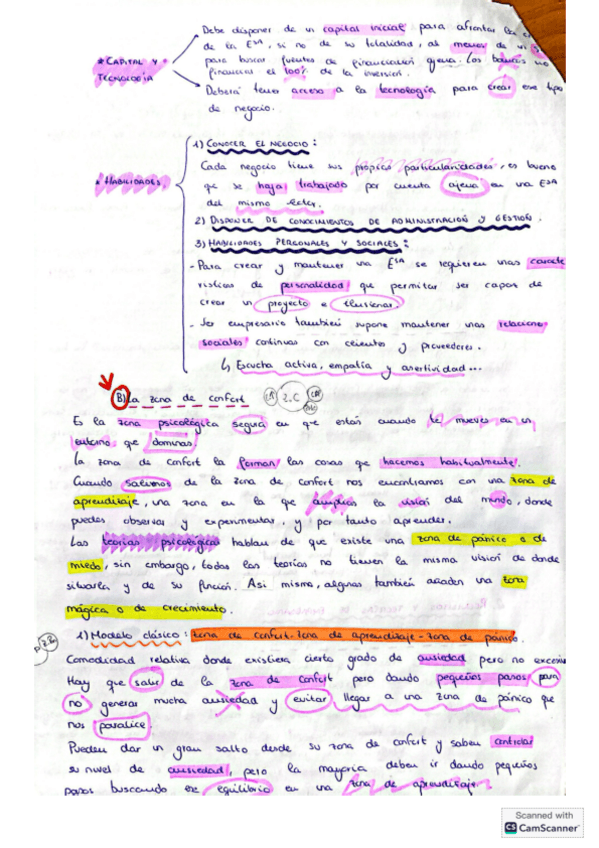 Debe disponer de un capital inicial para afrontar la
de la Esa, si no de su totalidad, al menos de un
* CAPITAL Y
para buscar fuentes de financiación ajena. Los bancos no
TECNOLOGÍA
financian el 100% de la inversión.
Deberá tener acceso a la tecnología para crear ese tipo
de negocio.
1) CONOCER EL NEGOCIO:
Cada negocio tiene sus propias particularidades, es bueno
* HABILIDADES
que se haya trabajado por cuenta ajena en una Esa
del mismo sector.
2) DISPONER DE CONOCIMIENTOS DE ADMINISTRACIÓN Y GESTIÓN.
3) HABILIDADES PERSONALES Y SOCIALES:
- Para crear y mantener una Esa se requieren unas caracte
rísticas de personalidad que permitan ser capaz de
crear un proyecto e ilusionar.
- Ser empresario también supone mantener unas relaciones
sociales continuas con clientes y proveedores.
↳ Escucha activa, empatía y asertividad...
B) La zona de confort
2.C
Es la zona psicológica segura en que estás cuando te mueves en un
entorno que dominas.
La zona de confort la forman las cosas que hacemos habitualmente.
Cuando salimos de la zona de confort nos encontramos con una zona de
aprendizaje, una zona en la que amplías la visión del mundo, donde
puedes observar y experimentar, y por tanto aprender.
Las teorías psicológicas hablan de que existe una zona de pánico o de
miedo, sin embargo, todas las teorías no tienen la misma visión de donde
situarla y de su función. Asi mismo, algunas también añaden una zona
mágica o de crecimiento.
1) Modelo clásico: zona de confort-zona de aprendizaje-zona de pánico.
Comodidad relativa donde existiera cierto grado de ansiedad pero no
Hay que salir de la zona de confort pero dando pequeños pasos para
no generar mucha ansiedad y evitar llegar a una zona de pánico que
nos paralice.
Pueden dar un gran salto desde su zona de confort y saben controlar
su nivel de ansiedad, pero la mayoría deben ir dando pequeños
pasos buscando ese equilibrio en una zona de aprendizaje.
Scanned with
CS CamScanner